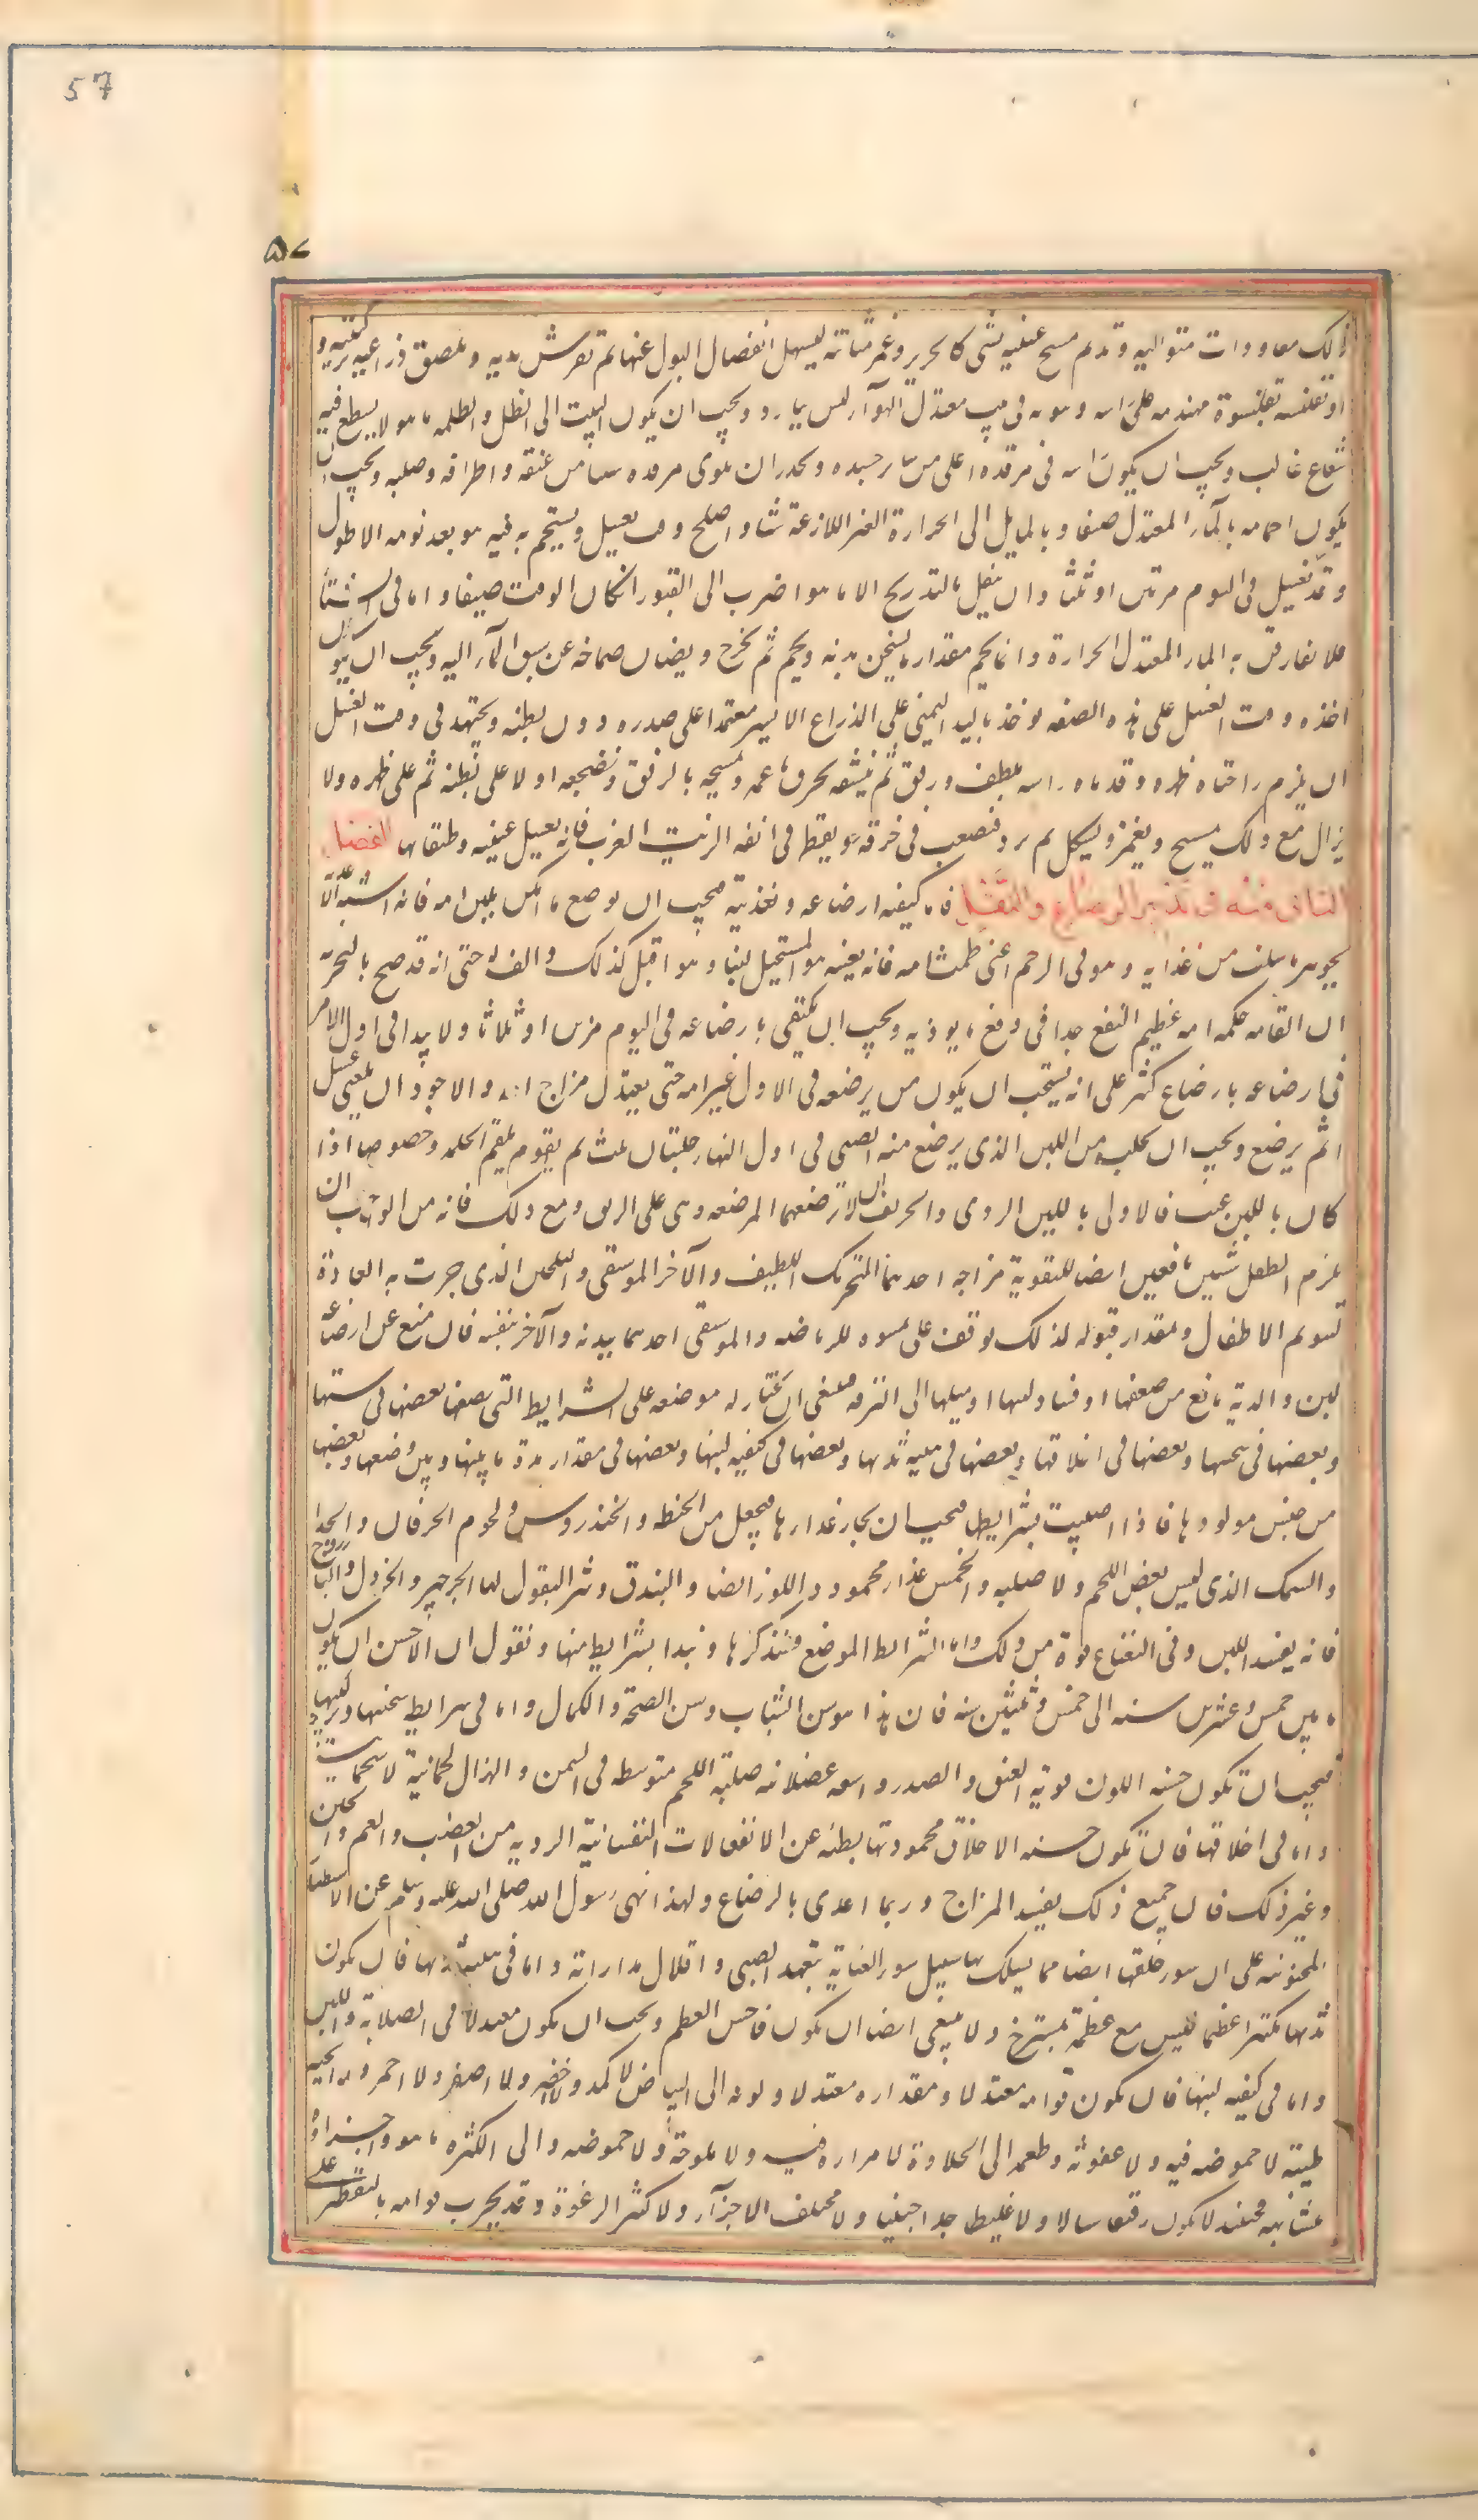 57
۵۷
ذلك معاودات متوالية وتديم مسح عينيه بشئ كالحرير وغمز مثانته ليسهل انفصال البول عنها ثم نفرش يديه ونلصق ذراعيه بركبتيه و
او نقلنسه بقلنسوة مهندمة على راسه وننومه فى بيت معتدل الهوآء ليس ببارد ويجب ان يكون البيت الى الظل والظلمة ما هو لا يسطع فيه
شعاع غالب ويجب ان يكون راسه فى مرقده اعلى من سائر جسده ويحذر ان يلوى مرقده شيئا من عنقه واطرافه وصلبه ويجب ان
يكون احمامه بالمآء المعتدل صيفا وبالمايل الى الحرارة الغير اللاذعة شتاء واصلح وقت يغسل ويستحم به فيه هو بعد نومه الاطول
وقد يغسل فى اليوم مرتين او ثلثا وان ينقل بالتدريج الى ما هو اضرب الى الفتور ان كان الوقت صيفا واما فى الشتاء
فلا يفارقن به الماء المعتدل الحرارة وانما يحمم مقدار ما يسخن بدنه ويحمر ثم يخرج ويصان صماخه عن سبق المآء اليه ويجب ان يكون
اخذه وقت الغسل على هذه الصفة يوخذ باليد اليمنى على الذراع الايسر معتمدا على صدره دون بطنه ويجتهد فى وقت الغسل
ان يلزم راحتاه ظهره وقدماه راسه بلطف ورفق ثم ينشفه بخرقة ناعمة ويمسحه بالرفق ونضجعه اولا على بطنه ثم على ظهره ولا
يزال مع ذلك يمسح ويغمز ويشكل ثم يرد فيعصب فى خرقة ويقطر فى انفه الزيت العذب فانه يغسل عينيه وطبقاتها الفصل
الثانى منه فى تدبير الرضاع والنقل فاما كيفية ارضاعه وتغذيته فيجب ان يرضع ما امكن بلبن امه فانه اشبه الاغذية
بجوهر ما سلف من غذايه وهو فى الرحم اعنى طمث امه فانه بعينه هو المستحيل لبنا وهو اقبل لذلك وآلف له حتى انه قد صح بالتجربة
ان القامه حلمة امه عظيم النفع جدا فى دفع ما يوذيه ويجب ان يكتفى بارضاعه فى اليوم مرتين او ثلاثا ولا يبدا فى اول الامر
فى ارضاعه بارضاع كثير على انه يستحب ان يكون من يرضعه فى الاول غير امه حتى يعتدل مزاج امه والاجود ان يلعق عسل
ا ثم يرضع ويجب ان يحلب من اللبن الذى يرضع منه الصبى فى اول النهار حلبتان او ثلث ثم يقوم يلقم الحلمة وخصوصا اذا
كان باللبن عيب فالاولى باللبن الردى والحريف ان لا ترضعهما المرضعة وهى على الريق ومع ذلك فانه من الواجب ان
يلزم الطفل شيئين نافعين ايضا لتقوية مزاجه احدهما التحريك اللطيف والآخر الموسيقى والتلحين الذى جرت به العادة
لتنويم الاطفال وبمقدار قبوله لذلك يوقف على تهيوه للرياضة والموسيقى احدهما ببدنه والآخر بنفسه فان منع عن ارضاعه
لبن والدته مانع من ضعفها او فساد لبنها او ميلها الى الترفه فينبغى ان يختار له مرضعة على الشرايط التى نصفها بعضها فى سنها
وبعضها فى سحنتها وبعضها فى اخلاقها وبعضها فى هيئة ثديها وبعضها فى كيفية لبنها وبعضها فى مقدار مدة ما بينها وبين وضعها وبعضها
من جنس مولودها فاذا اصيبت بشرايطها فيجب ان يجاد غذاءها فيجعل من الحنطة والخندروس ولحوم الخرفان والجدا
والسمك الذى ليس بعفن اللحم ولا صلبه والخس غذاء محمود واللوز ايضا والبندق وشر البقول لها الجرجير والخردل والباذروج
فانه يفسد اللبن وفى النعناع قوة من ذلك واما شرايط المرضع فسنذكرها ونبدا بشرايط سنها ونقول ان الاحسن ان يكون
ما بين خمس وعشرين سنة الى خمس وثلثين سنة فان هذا هو سن الشباب وسن الصحة والكمال واما فى شرايط سحنتها وتركيبها
فيجب ان تكون حسنة اللون قوية العنق والصدر واسعه عضلانية صلبة اللحم متوسطة فى السمن والهزال لحمانية لا شحمانية
واما فى اخلاقها فان تكون حسنة الاخلاق محمودتها بطيئة عن الانفعالات النفسانية الردية من الغضب والغم والجبن
وغير ذلك فان جميع ذلك يفسد المزاج وربما اعدى بالرضاع ولهذا نهى رسول الله صلى الله عليه وسلم عن الاستظار
المجنونة على ان سوء خلقها ايضا مما يسلك بها سبيل سوء العناية بتعهد الصبى واقلال مداراته واما فى هيئة ثديها فان يكون
ثديها مكتنزا عظيما ليس مع عظمه بمسترخ ولا ينبغى ايضا ان يكون فاحش العظم ويجب ان يكون معتدلا فى الصلابة واللين
واما فى كيفية لبنها فان يكون قوامه معتدلا ومقداره معتدلا ولونه الى البياض لا كمد ولا اخضر ولا اصفر ولا احمر ورايحته
طيبة لا حموضة فيه ولا عفونة وطعمه الى الحلاوة لا مرارة فيه ولا ملوحة ولا حموضة والى الكثرة ما هو واجزاؤه
متشابهة فحينئذ لا يكون رقيقا سيالا ولا غليظا جدا جبنيا ولا مختلف الاجزآء ولا كثير الرغوة وقد يجرب قوامه بالتقطير على